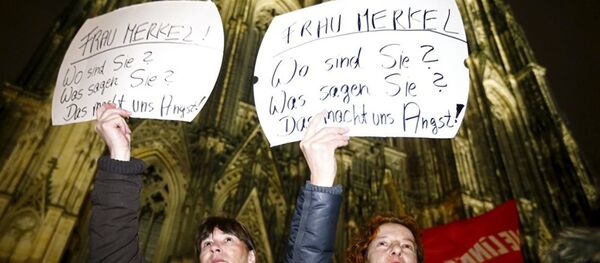 FRAU MERKEL!
Wo sind Sie?
Was sagen Sie?
Das macht uns Angst!
FRAU MERKEL:
Wo sind Sie?
Was sagen Sie?
Das macht uns Angst!
DIE LINKE